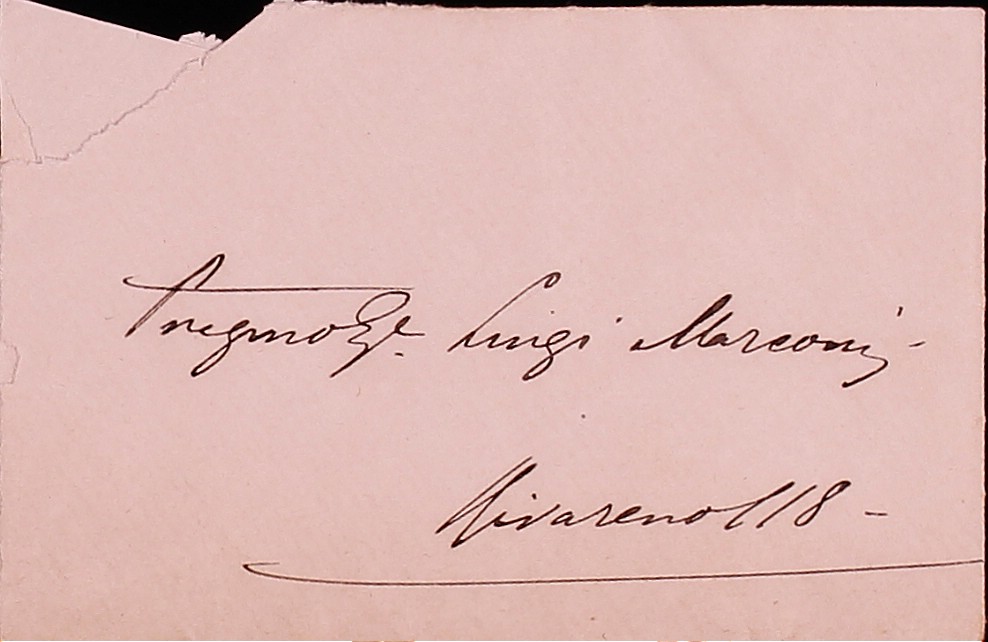 Pregmo Sigr. Luigi Marconi -
Rivareno 118 -